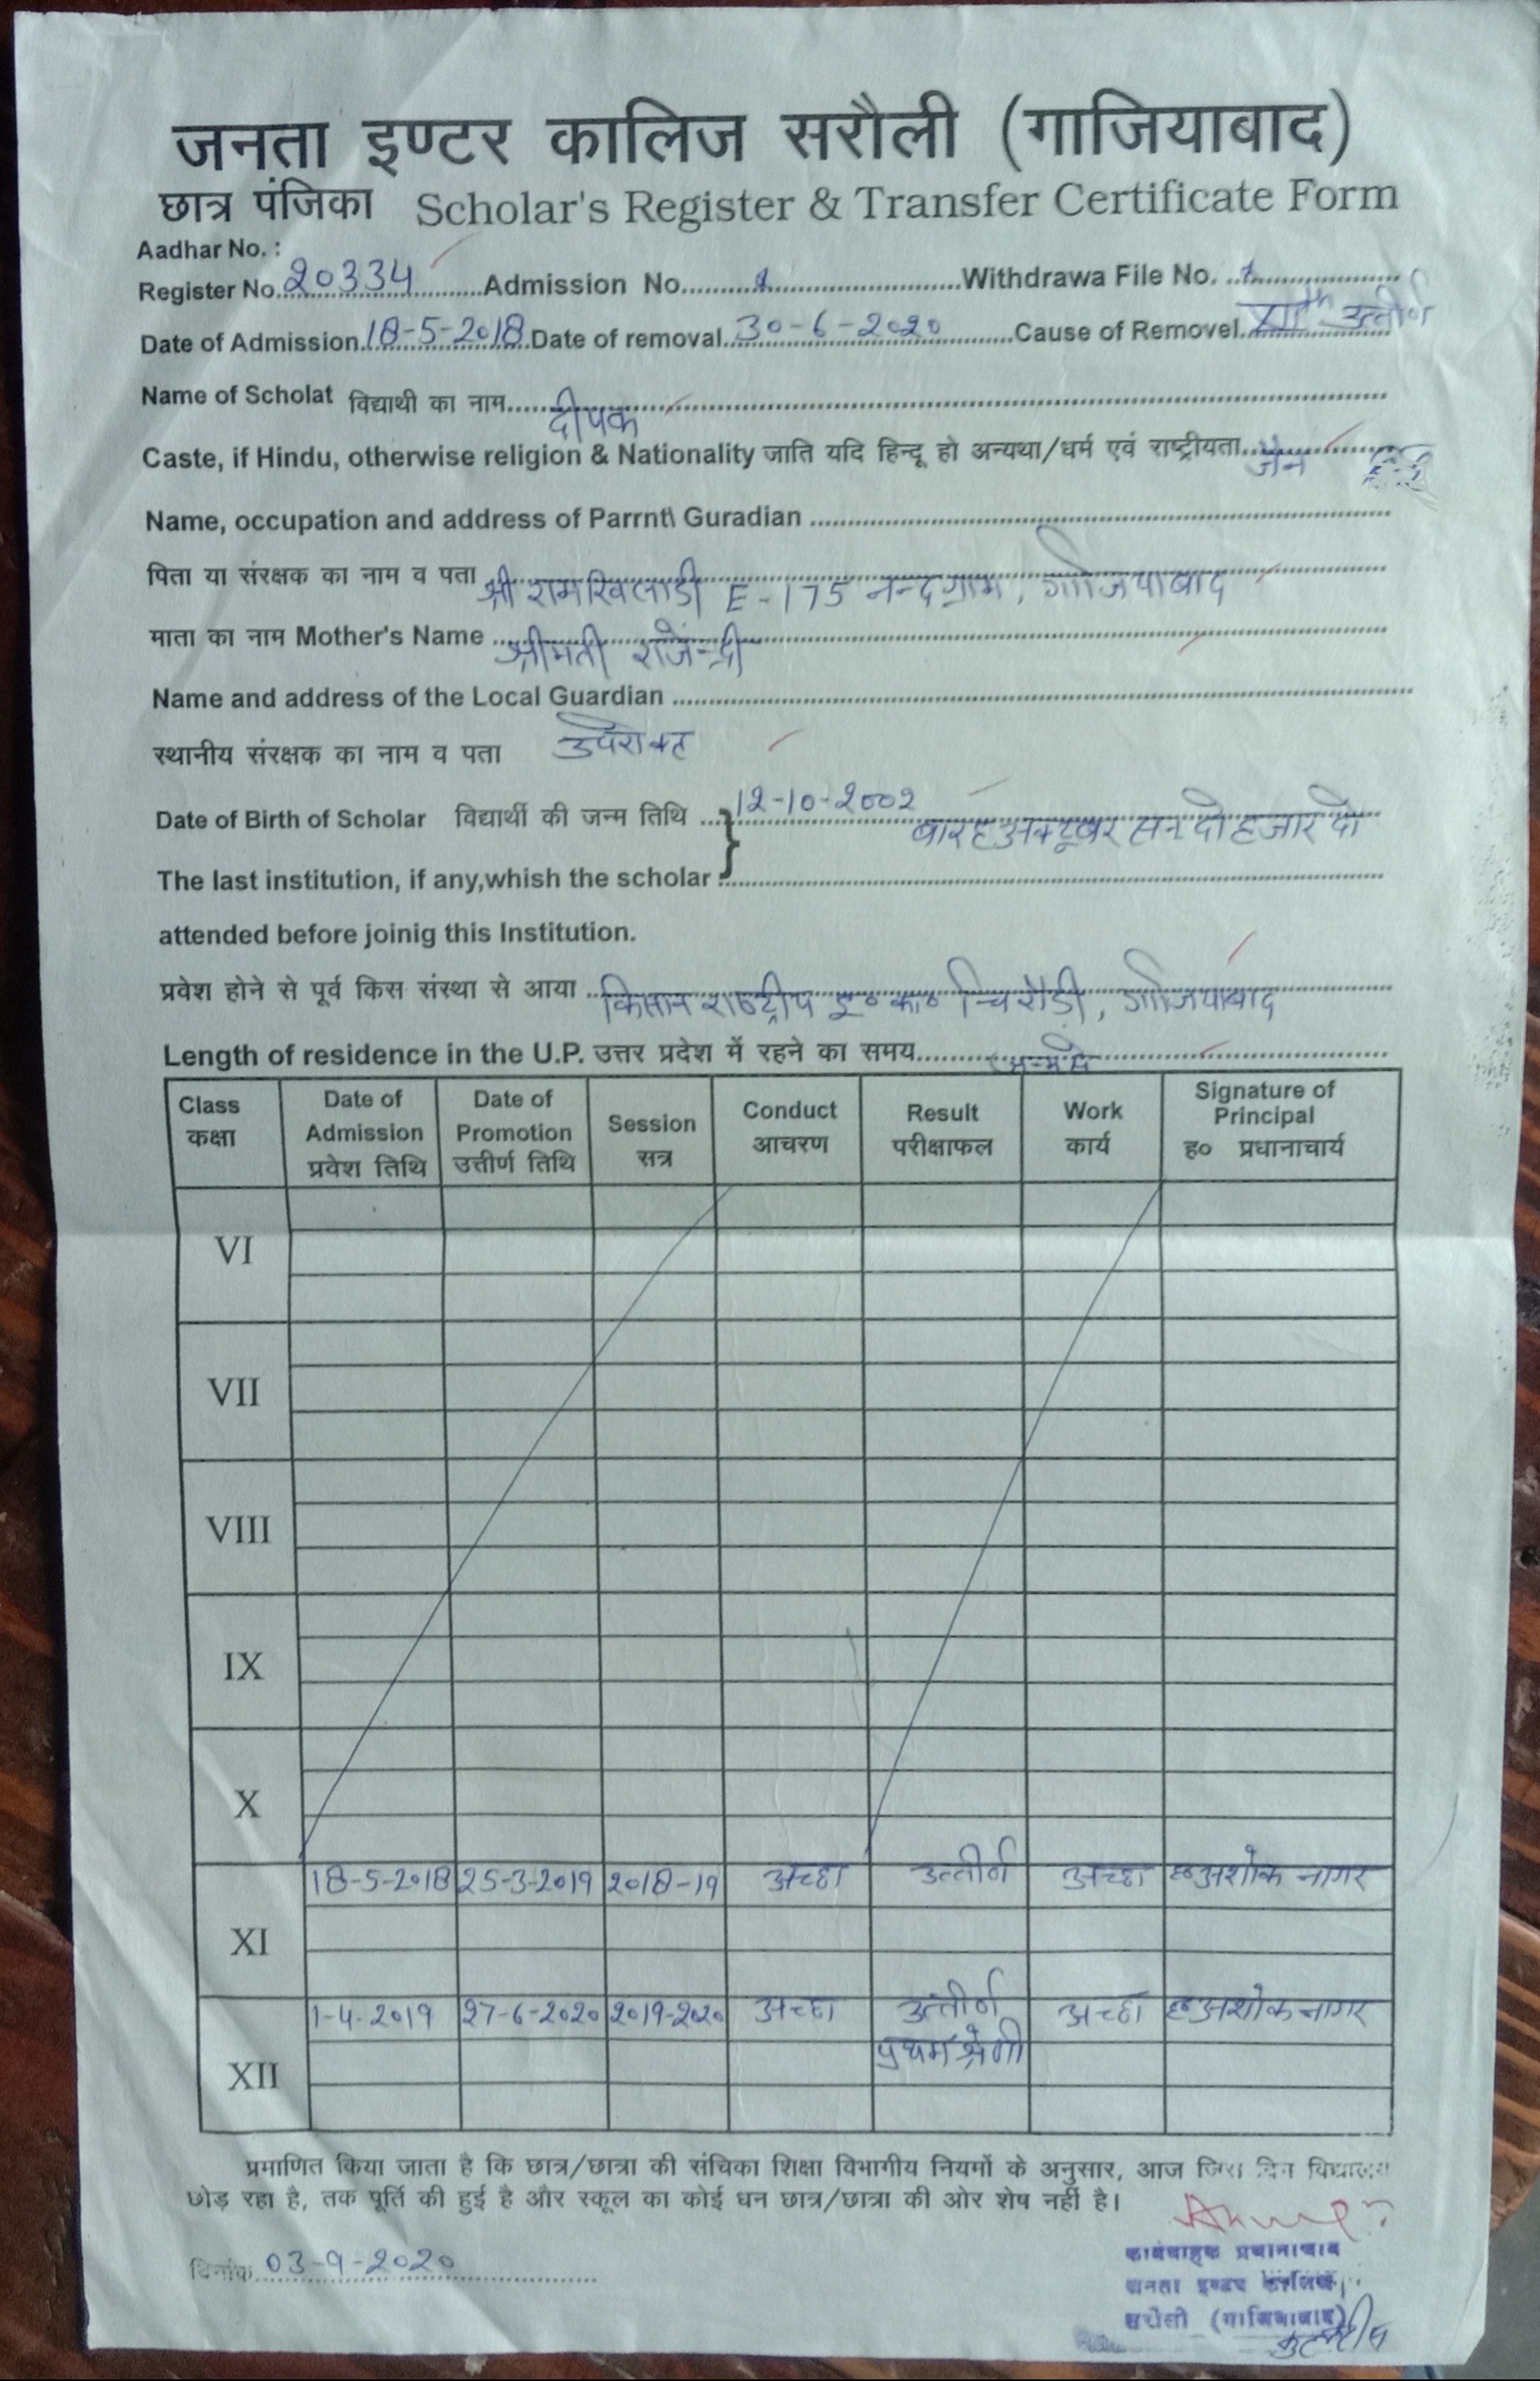 जनता इण्टर कालिज सरौली (गाजियाबाद)
छात्र पंजिका Scholar's Register & Transfer Certificate Form
Aadhar No. :
Register No. 20334 Admission No. Withdrawa File No.
Date of Admission 18-5-2018 Date of removal 30-6-2020 Cause of Removel XIIth उत्तीर्ण
Name of Scholat विद्यार्थी का नाम दीपक
Caste, if Hindu, otherwise religion & Nationality जाति यदि हिन्दू हो अन्यथा/धर्म एवं राष्ट्रीयता जैन
Name, occupation and address of Parrnt\ Guradian
पिता या संरक्षक का नाम व पता श्री रामखिलाडी E-175 नन्दग्राम, गाजियाबाद
माता का नाम Mother's Name श्रीमती राजेन्द्री
Name and address of the Local Guardian
स्थानीय संरक्षक का नाम व पता उपरोक्त
Date of Birth of Scholar विद्यार्थी की जन्म तिथि 12-10-2002 बारह अक्टूबर सन दो हजार दो
The last institution, if any,whish the scholar
attended before joinig this Institution.
प्रवेश होने से पूर्व किस संस्था से आया किसान राष्ट्रीय इ० का० चिरौडी, गाजियाबाद
Length of residence in the U.P. उत्तर प्रदेश में रहने का समय जन्म से
Class Date of Date of Session Conduct Result Work Signature of
कक्षा Admission Promotion सत्र आचरण परीक्षाफल कार्य Principal
प्रवेश तिथि उत्तीर्ण तिथि ह० प्रधानाचार्य
VI
VII
VIII
IX
X
XI 18-5-2018 25-3-2019 2018-19 अच्छा उत्तीर्ण अच्छा ह०अशोक नागर
XII 1-4-2019 27-6-2020 2019-2020 अच्छा उत्तीर्ण अच्छा ह०अशोक नागर
प्रथम श्रेणी
प्रमाणित किया जाता है कि छात्र/छात्रा की संचिका शिक्षा विभागीय नियमों के अनुसार, आज जिस दिन विद्यालय
छोड़ रहा है, तक पूर्ति की हुई है और स्कूल का कोई धन छात्र/छात्रा की ओर शेष नहीं है।
दिनांक 03-9-2020
कार्यवाहक प्रधानाचार्य
जनता इण्टर कालिज
सरौली (गाजियाबाद)